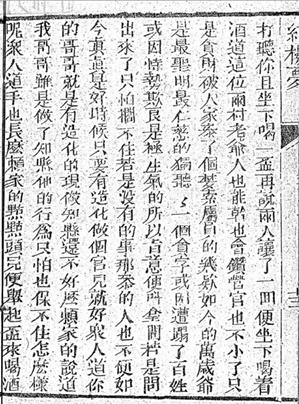 紅樓夢
打聽你且坐下喝一盃再說兩人讓了一回便坐下喝着
酒道這位雨村老爺人也能幹也會鑽營官也不小了只
是貪財被人家叅了個婪索屬員的幾欵如今的萬歲爺
是最聖明最仁慈的獨聽了一個貪字或因遭蹋了百姓
或因恃勢欺良是極生氣的所以旨意便呌拿問若是問
出來了只怕擱不住若是没有的事那叅的人也不便如
今真真是好時候只要有造化做個官兒就好衆人道你
的哥哥就是有造化的現做知縣還不好麽賴家的說道
我哥哥雖是做了知縣他的行爲只怕也保不住怎麽樣
呢衆人道手也長麽賴家的點點頭兒便舉起盃來喝酒